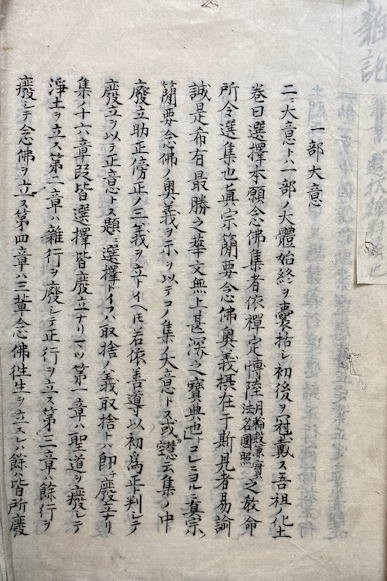 一部大意
二ニ大意ト一部ノ大體始終ヲ嚢括シ初後ヲ冠戴ス吾祖ノ化土
卷曰選擇本願念佛集者依禪定博陸月輪殿兼實法名圓照之教命
所令選集也眞宗簡要念佛奧義攝在于斯見者易諭
誠是希有最勝之華文無上甚深之寶典也ト コレニヨルニ眞宗ノ
簡要念佛ノ奧義ヲ示ヲ以テコノ集ノ大意トス或ハ云集ノ中
廢立助正傍正ノ三義ヲ立トイヘ𪜈若依善導以初爲正判シテ
廢立ヲ以テ正意トス題ニ選擇トイフハ取捨ノ義取捨トハ即チ廢立ナリ
集ノ十六章段皆選擇皆廢立ナリ一ツ第一章ハ聖道ヲ癈シテ
淨土ヲ立ス第二章ハ雜行ヲ廢シテ正行ヲ立ス第三章ハ餘行ヲ
癈シテ念佛ヲ立ス第四章ハ三輩念佛徃生ヲ立スレハ餘皆所廢
雜記